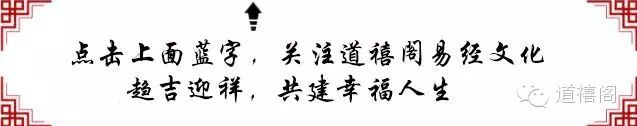 点击上面蓝字，关注道禧阁易经文化
趋吉迎祥，共建幸福人生
道禧阁